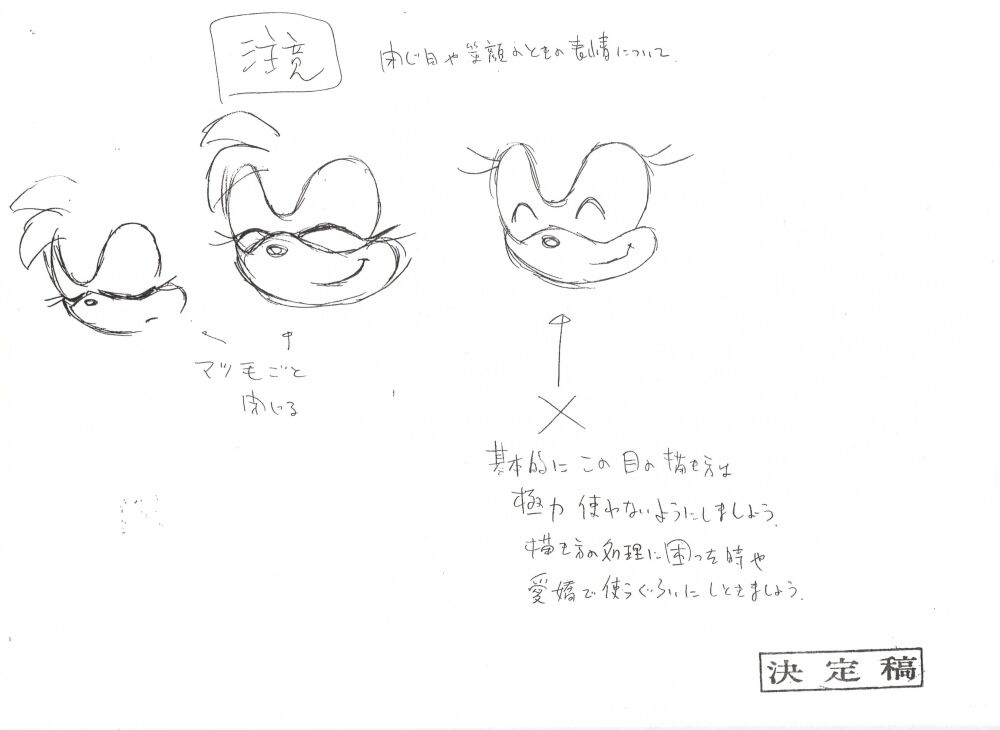 注意
閉じ目や笑顔のときの表情について
マツ毛ごと
閉じる
基本的に この 目の 描き方は
極力 使わないようにしましょう。
描き方の処理に困った時や
愛嬌で使うぐらいにしときましょう。
決定稿